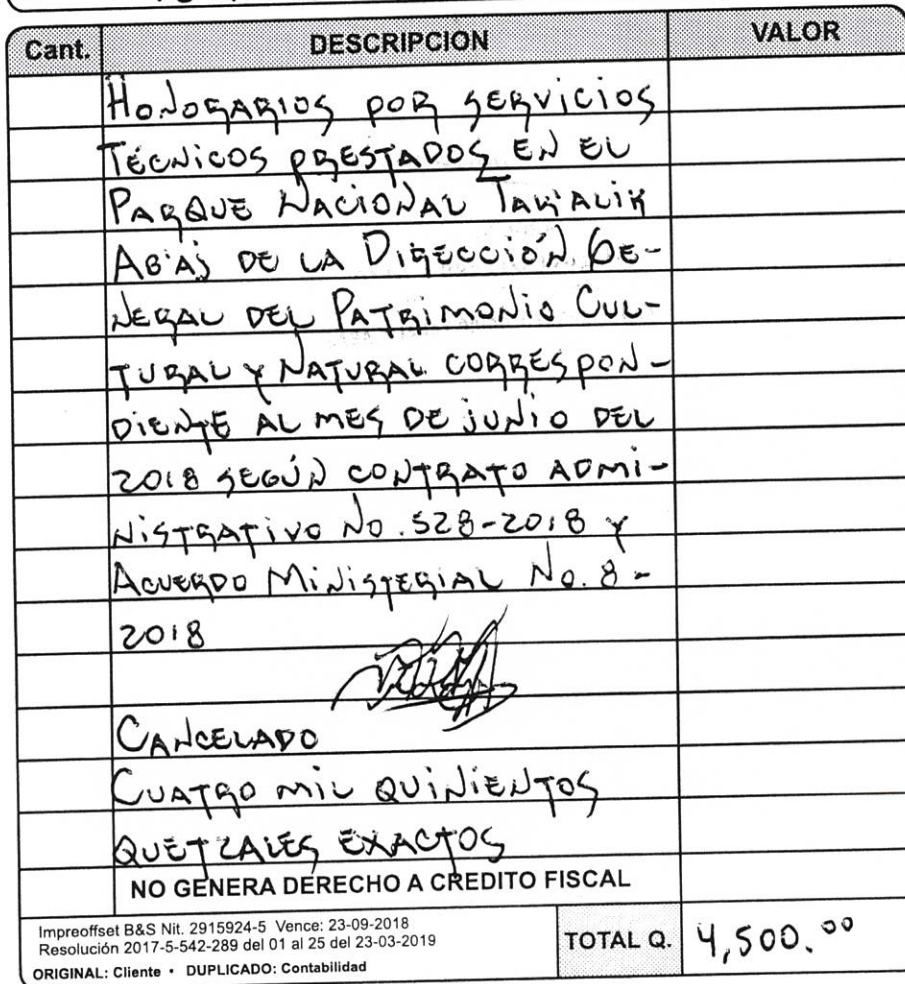 Cant. DESCRIPCION VALOR
HONORARIOS POR SERVICIOS
TÉCNICOS PRESTADOS EN EL
PARQUE NACIONAL TAK'ALIK
AB'AJ DE LA DIRECCIÓN GE-
NERAL DEL PATRIMONIO CUL-
TURAL Y NATURAL CORRESPON-
DIENTE AL MES DE JUNIO DEL
2018 SEGÚN CONTRATO ADMI-
NISTRATIVO NO. 528-2018 Y
ACUERDO MINISTERIAL NO. 8-
2018
CANCELADO
CUATRO MIL QUINIENTOS
QUETZALES EXACTOS
NO GENERA DERECHO A CREDITO FISCAL
Impreoffset B&S Nit. 2915924-5 Vence: 23-09-2018
Resolución 2017-5-542-289 del 01 al 25 del 23-03-2019
ORIGINAL: Cliente • DUPLICADO: Contabilidad
TOTAL Q. 4,500.00